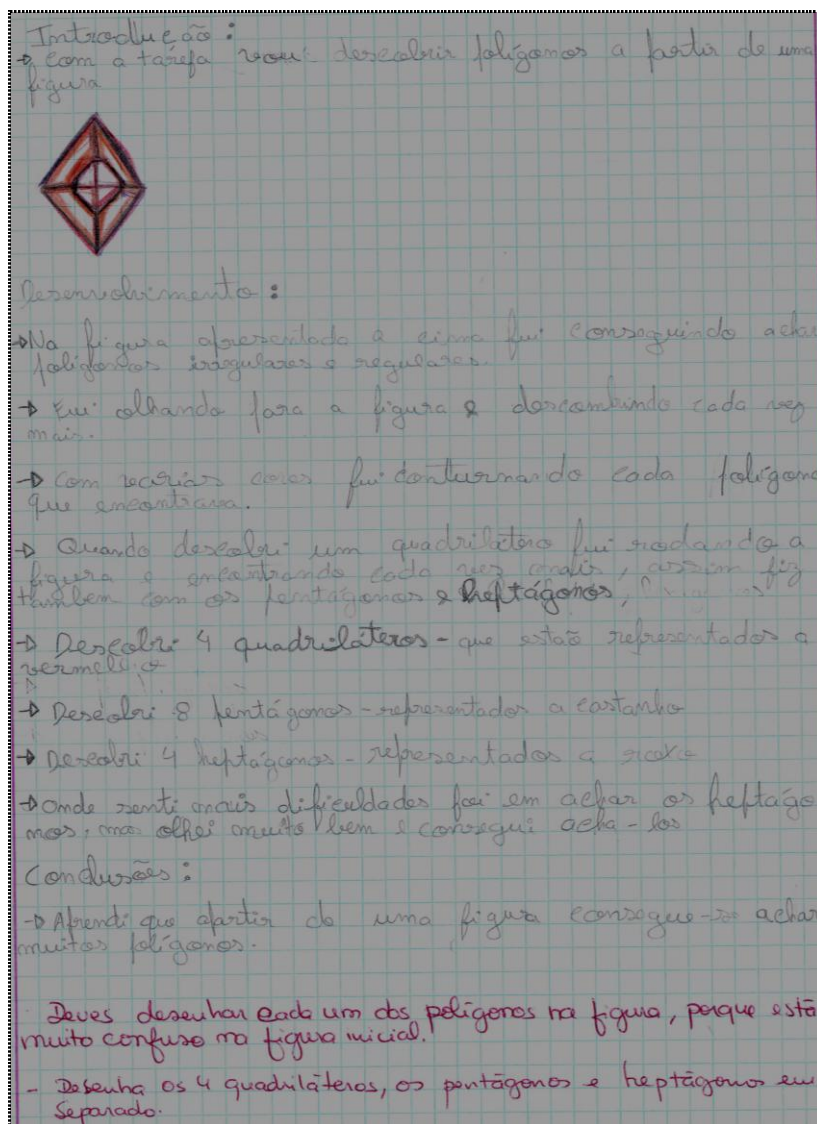 Introdução:
→ Com a tarefa vou descobrir polígonos a partir de uma
figura
Desenvolvimento:
→ Na figura apresentada a cima fui conseguindo achar
polígonos irregulares e regulares.
→ Fui olhando para a figura e descombrindo cada vez
mais.
→ Com várias cores fui conturnando cada polígono
que encontrava.
→ Quando descobri um quadrilátero fui rodando a
figura e encontrando cada vez mais, assim fiz
também com os pentágonos e heptágonos,
→ Descobri 4 quadriláteros - que estão representados a
vermelho
→ Descobri 8 pentágonos - representados a castanho
→ Descobri 4 heptágonos - representados a roxo
→ Onde senti mais dificuldades foi em achar os heptágo
nos, mas olhei muito bem e consegui acha-los
Conclusões:
→ Aprendi que apartir de uma figura consegue-se achar
muitos polígonos.
Deves desenhar cada um dos polígonos na figura, porque está
muito confuso na figura inicial.
- Desenha os 4 quadriláteros, os pentágonos e heptágonos em
separado.